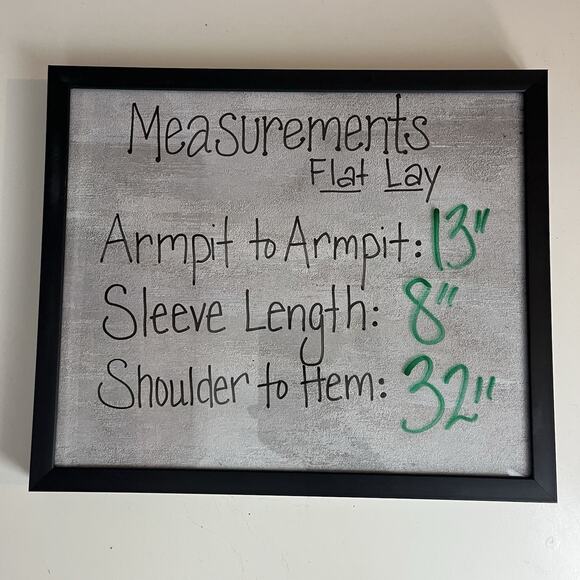 Measurements
Flat Lay
Armpit to Armpit: 13"
Sleeve Length: 8"
Shoulder to Hem: 32"